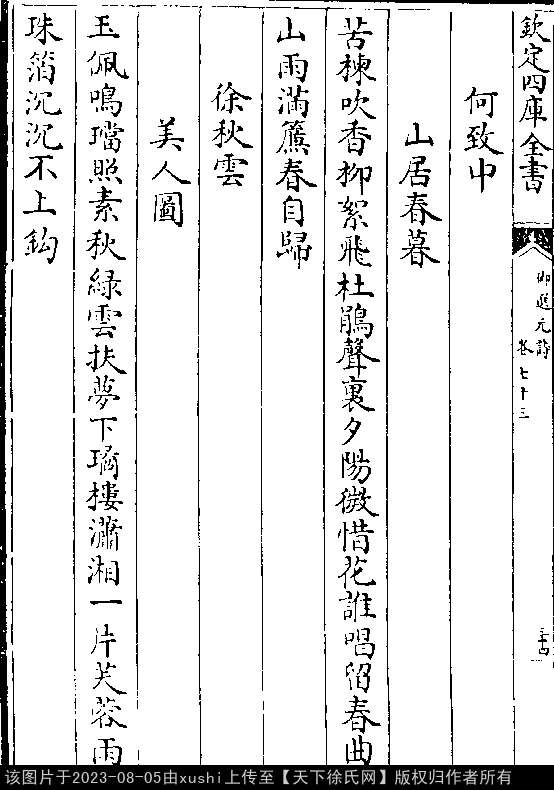 欽定四庫全書
御選元詩
卷七十三
何致中
山居春暮
苦楝吹香柳絮飛杜鵑聲裏夕陽微惜花誰唱留春曲
山雨滿簾春自歸
徐秋雲
美人圖
玉佩鳴璫照素秋綠雲扶夢下瓊樓瀟湘一片芙蓉雨
珠箔沉沉不上鈎
该图片于2023-08-05由xushi上传至【天下徐氏网】版权归作者所有